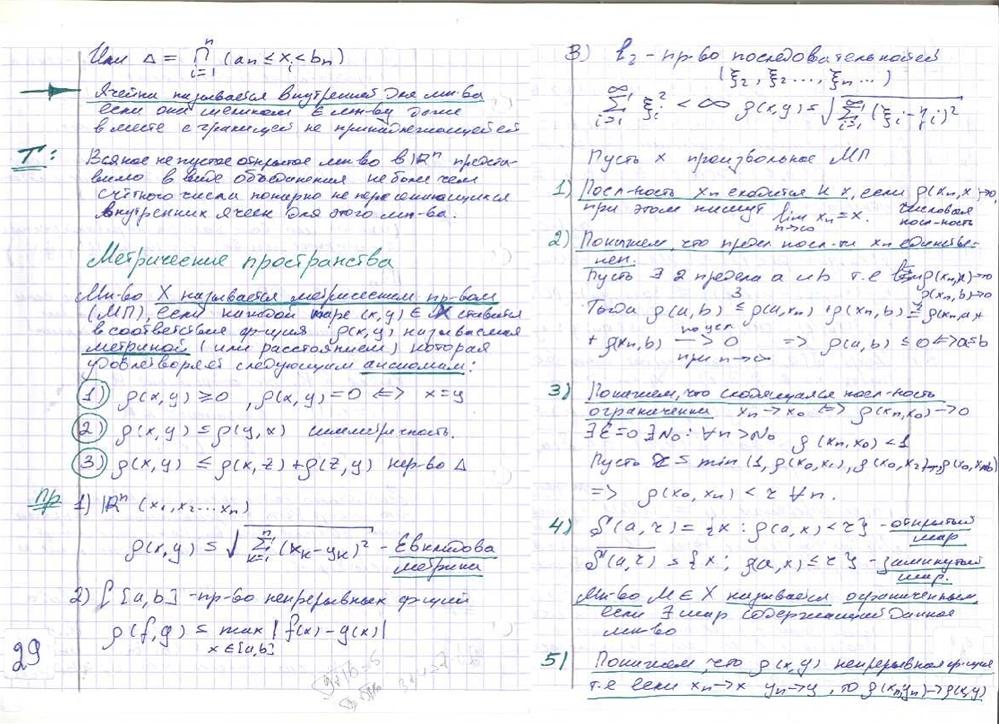 Или Δ = ∏ⁿᵢ₌₁ (aₙ ≤ xᵢ < bₙ)
Ячейка называется внутренней для мн-ва
если она целиком ∈ мн-ву даже
вместе с границей не принадлежащей ей
Т: Всякое не пустое открытое мн-во в ℝⁿ предста-
вимо в виде объединения не более чем
счётного числа попарно не пересекающихся
внутренних ячеек для этого мн-ва.
Метрические пространства
Мн-во X называется метрическим пр-вом
(МП), если каждой паре (x,y) ∈ X ставится
в соответствие ф-ция ρ(x,y) называемая
метрикой (или расстоянием) которая
удовлетворяет следующим аксиомам:
1) ρ(x,y) ≥ 0, ρ(x,y) = 0 <=> x=y
2) ρ(x,y) = ρ(y,x) симметричность.
3) ρ(x,y) ≤ ρ(x,z)+ρ(z,y) нер-во Δ
пр 1) ℝⁿ (x₁,x₂...xₙ)
ρ(x,y) = √∑ⁿₖ₌₁(xₖ-yₖ)² - Евклидова
метрика
2) [a,b] - пр-во непрерывных ф-ций
ρ(f,g) = max | f(x) - g(x)|
x∈[a,b]
29
3) l₂ - пр-во последовательностей
(ξ₂, ξ₂ ..., ξₙ ...)
∑^∞ᵢ₌₁ ξᵢ² < ∞ ρ(x,y) = √∑^∞ᵢ₌₁ (ξᵢ - ηᵢ)²
Пусть x произвольное МП
1) Посл-ность xₙ сходится к x, если ρ(xₙ,x)→0,
при этом пишут lim xₙ = x. числовая
n→∞ посл-ность
2) Покажем, что предел посл-ти xₙ единстве-
нен.
Пусть ∃ 2 предела a и b т.е ρ(xₙ,a)→0
ρ(xₙ,b)→0
Тогда ρ(a,b) ≤³ ρ(a,xₙ)+ρ(xₙ,b) =² ρ(xₙ,a)+
+ ρ(xₙ,b) → 0 => ρ(a,b) ≤ 0 <=> a=b
по усл
при n→∞
3) Покажем, что сходящаяся посл-ность
ограничена xₙ→x₀ <=> ρ(xₙ,x₀)→0
∃ N₀: ∀n>N₀ ρ(xₙ,x₀)<1
Пусть = min (1, ρ(x₀,x₁), ρ(x₀,x₂)...
=> ρ(x₀,xₙ) < r ∀n.
4) S(a,r) = {x: ρ(a,x) < r} - открытый
шар
S̄(a,r) = {x; ρ(a,x) ≤ r} - замкнутый
шар.
Мн-во M ∈ X называется ограниченным,
если ∃ шар содержащий данное
мн-во
5) Покажем, что ρ(x,y) непрерывная ф-ция
т.е если xₙ→x yₙ→y, то ρ(xₙ,yₙ)→ρ(x,y)